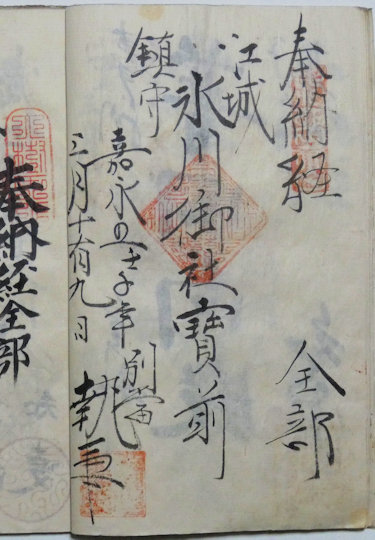 奉納経 全部
江城
鎮守
氷川御社寶前
嘉永五壬子年 別當
三月十有九日 執事
奉納経全部